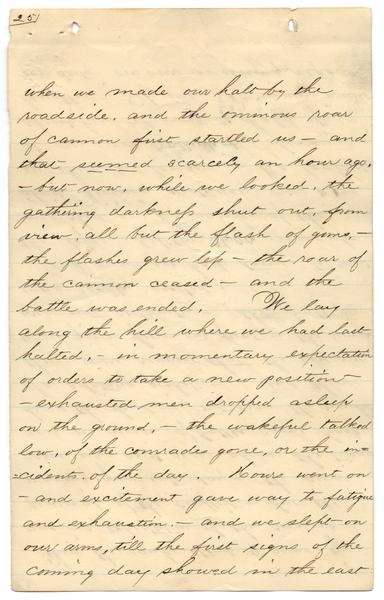 25
when we made our halt by the
roadside, and the ominous roar
of cannon first startled us — and
that seemed scarcely an hour ago,
— but now, while we looked, the
gathering darkness shut out, from
view, all but the flash of guns, —
the flashes grew less — the roar of
the cannon ceased — and the
battle was ended. We lay
along the hill where we had last
halted, — in momentary expectation
of orders to take a new position
— exhausted men dropped asleep
on the ground, — the wakeful talked
low, of the comrades gone, or the in=
=cidents of the day. Hours went on
— and excitement gave way to fatigue
and exhaustion. — and we slept on
our arms, till the first signs of the
coming day showed in the east